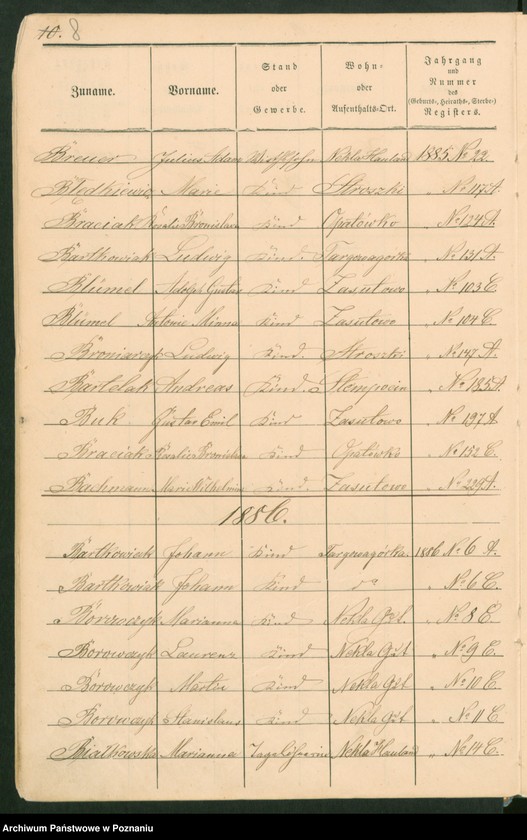 10. 8
Zuname. Vorname. Stand oder Gewerbe. Wohn- oder Aufenthalts-Ort. Jahrgang und Nummer des (Geburts-, Heiraths-, Sterbe-) Registers.
Breuer Julius Adam Nekla Hauland 1885 No 22
Błędkiewicz Marie Kind Stroszki " No 117 A.
Braciak Rosalie Bronislawa Kind Opatówko " No 124 A.
Bartkowiak Ludwig Kind. Targowagorka " No 131 A.
Blümel Adolph Gustav Kind Zasutowo " No 103 C.
Blümel Antonie Minna Kind Zasutowo " No 104 C.
Broniarczyk Ludwig Kind. Stroszki " No 147 A.
Bartelak Andreas Kind. Stempocin " No 185 A
Buk Gustav Emil Kind Zasutowo " No 197 A.
Braciak Rosalie Bronislawa Kind Opatówko " No 152 C.
Bachmann Marie Wilhelmine Kind. Zasutowo " No 229 A.
1886.
Bartkowiak Johann Kind Targowagórka. 1886 No 6 A.
Bartkowiak Johann Kind do " No 6 C.
Borowczyk Marianna Kind Nekla Gut. " No 8 C.
Borowczyk Laurenz Kind Nekla Gut " No 9 C.
Borowczyk Martin Kind Nekla Gut " No 10 C.
Borowczyk Stanislaus Kind Nekla Gut " No 11 C.
Bialkowska Marianna Tagelöhnerin Nekla Hauland " No 14 C.
Archiwum Państwowe w Poznaniu